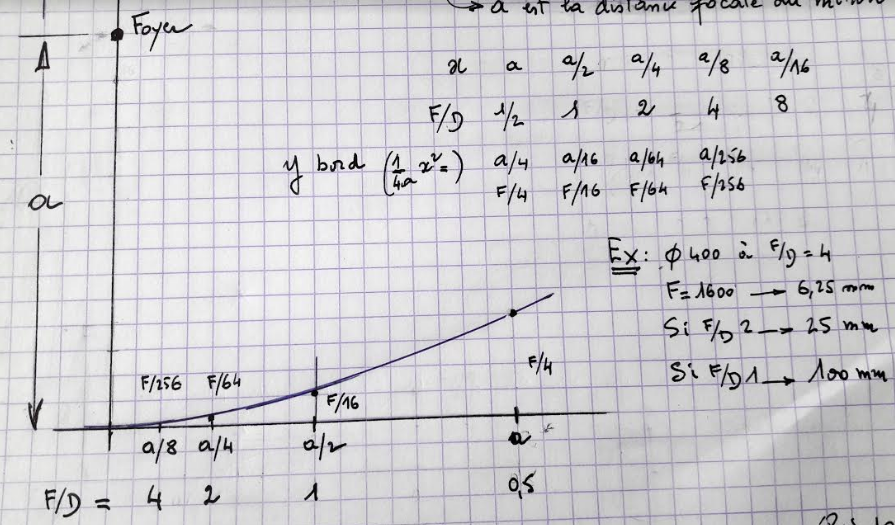 a est la distance focale du miroir
Foyer
x a a/2 a/4 a/8 a/16
F/D 1/2 1 2 4 8
y bord (1/4a x²=) a/4 a/16 a/64 a/256
F/4 F/16 F/64 F/256
a
Ex: ϕ 400 à F/D = 4
F=1600 → 6,25 mm
Si F/D 2 → 25 mm
Si F/D 1 → 100 mm
F/256 F/64 F/16 F/4
a/8 a/4 a/2 a
F/D = 4 2 1 0,5